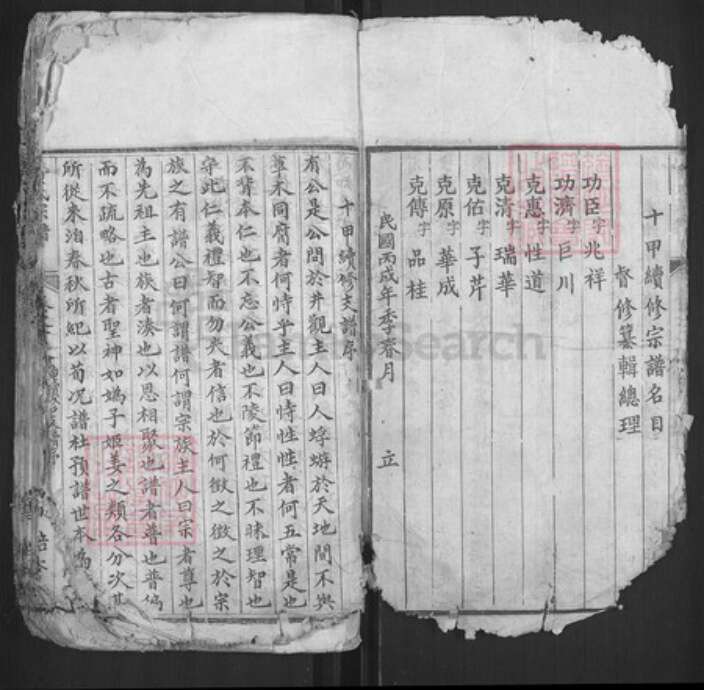 十甲續修宗譜名目
督修纂輯總理
功臣字兆祥
功濟字巨川
克惠字性道
克清字瑞華
克佑字子芹
克原字華成
克傳字品桂
民國丙戌年季春月 立
十甲續修支譜序
有公是公問於井觀主人曰人蜉蝣於天地間不與
草木同腐者何恃乎主人曰恃性性者何五常是也
不背本仁也不忘公義也不陵節禮也不昧理智也
守此仁義禮智而勿失者信也於何徵之徵之於宗
族之有譜公曰何謂譜何謂宗族主人曰宗者尊也
為先祖主也族者湊也以恩相聚也譜者普也普徧
而不疏略也古者聖神如媯子姬姜之類各分次其
所從來洎春秋所紀以荀況譜杜預譜世本為